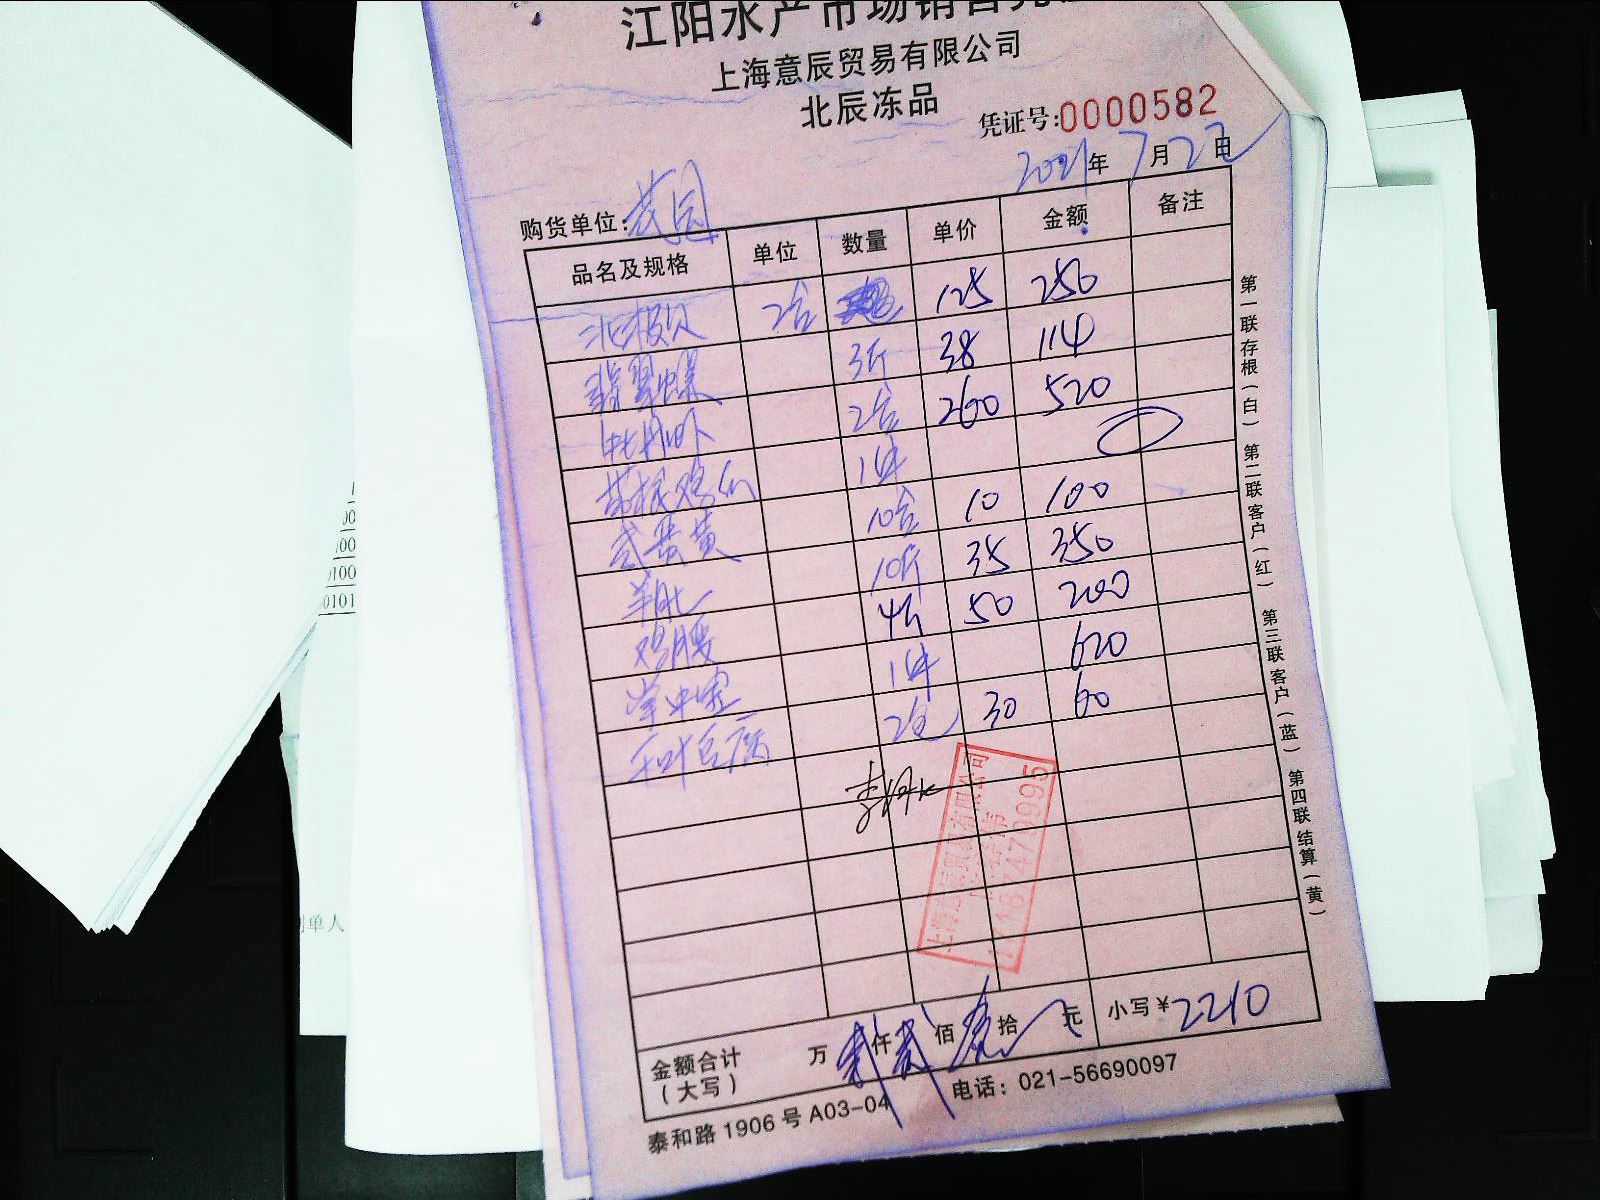 江阳水产市场销售凭证
上海意辰贸易有限公司
北辰冻品
凭证号:0000582
2021年 7月22日
购货单位:
品名及规格 单位 数量 单价 金额 备注
北极贝 2合 125 250
翡翠螺 3斤 38 114
2合 260 520
1件
10合 10 100
羊肚 10斤 35 350
鸡腰 4斤 50 200
1件 620
千叶豆腐 2包 30 60
金额合计 万 贰仟贰佰壹拾 元 小写¥2210
(大写)
泰和路1906号A03-04 电话:021-56690097
第一联存根(白) 第二联客户(红) 第三联客户(蓝) 第四联结算(黄)
00
100
0100
00101
制单人